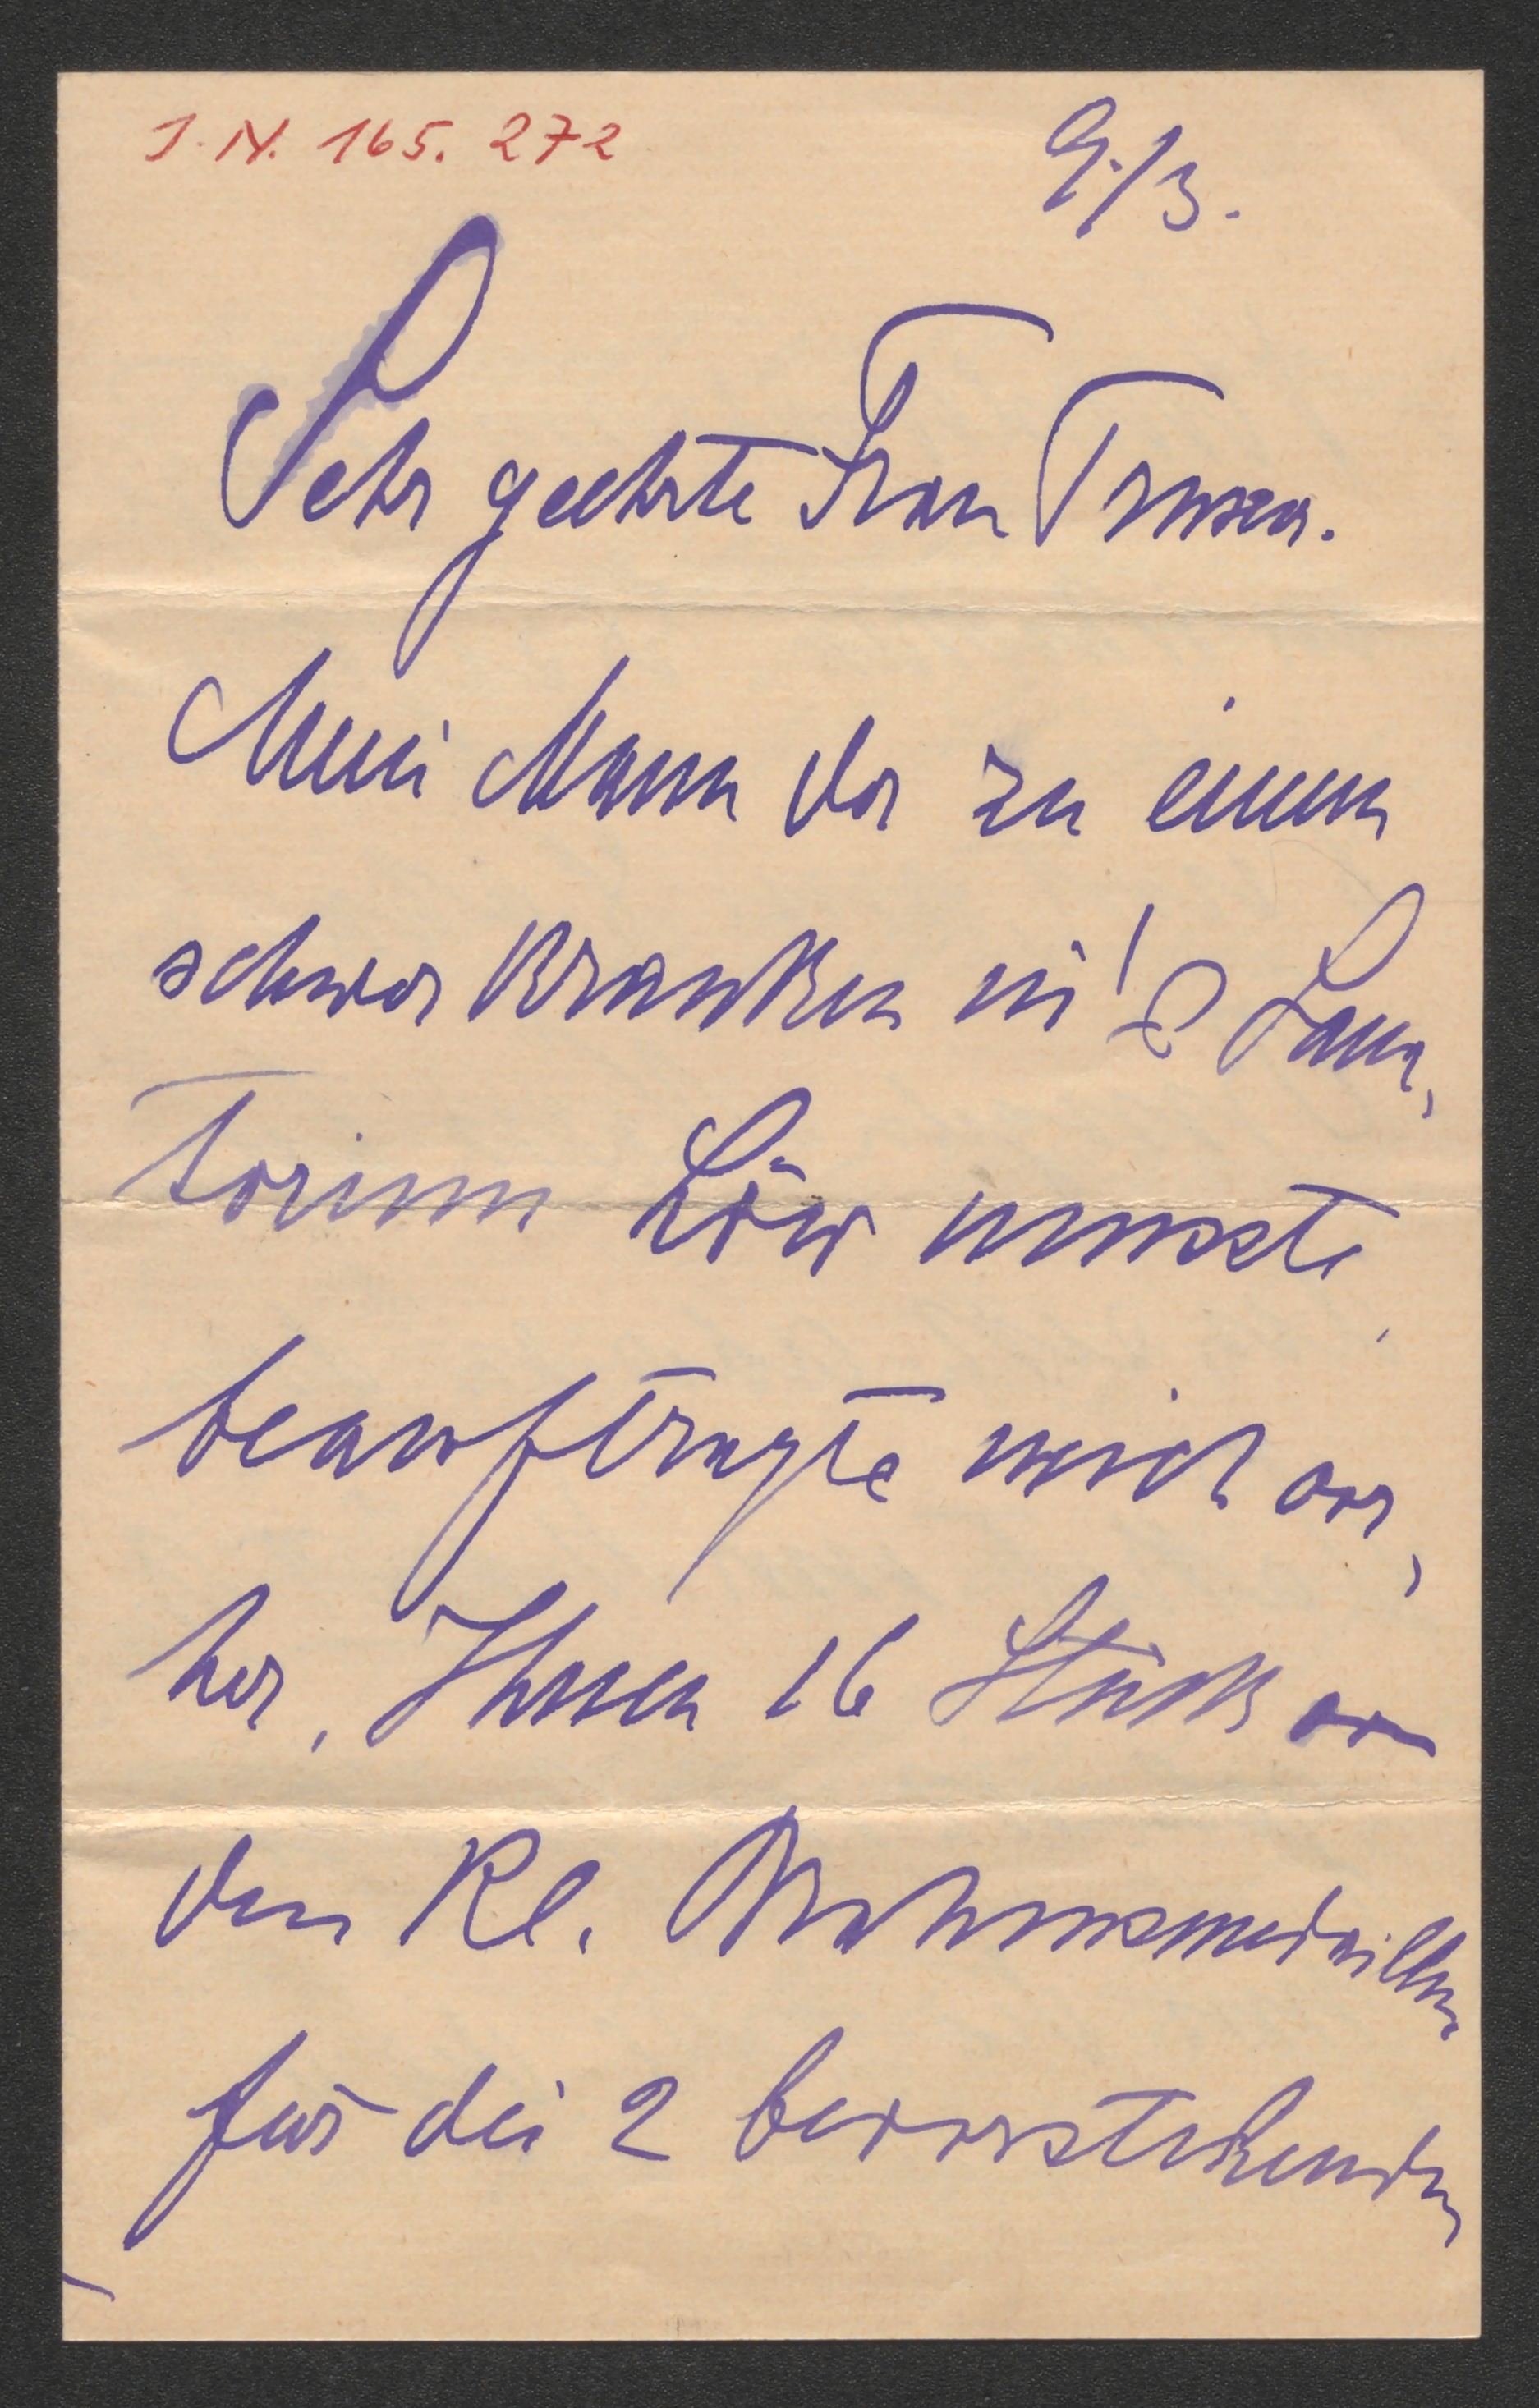 J.N. 165.272
9./3.
Sehr geehrte Frau Truxa.
Mein Mann der zu einem
schwer Kranken in's Sana,
torium Löw musste
beauftragte mich vor,
her, Ihnen 16 Stück von
den kl. Brahmsmedaillen
für die 2 bevorstehenden